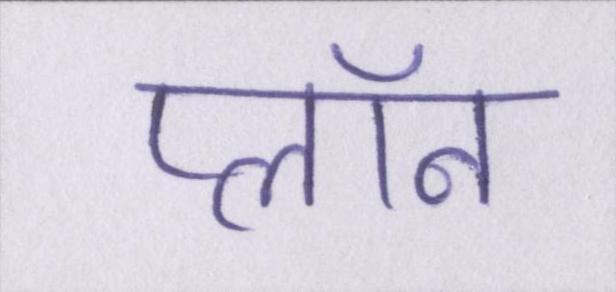 प्लॉन